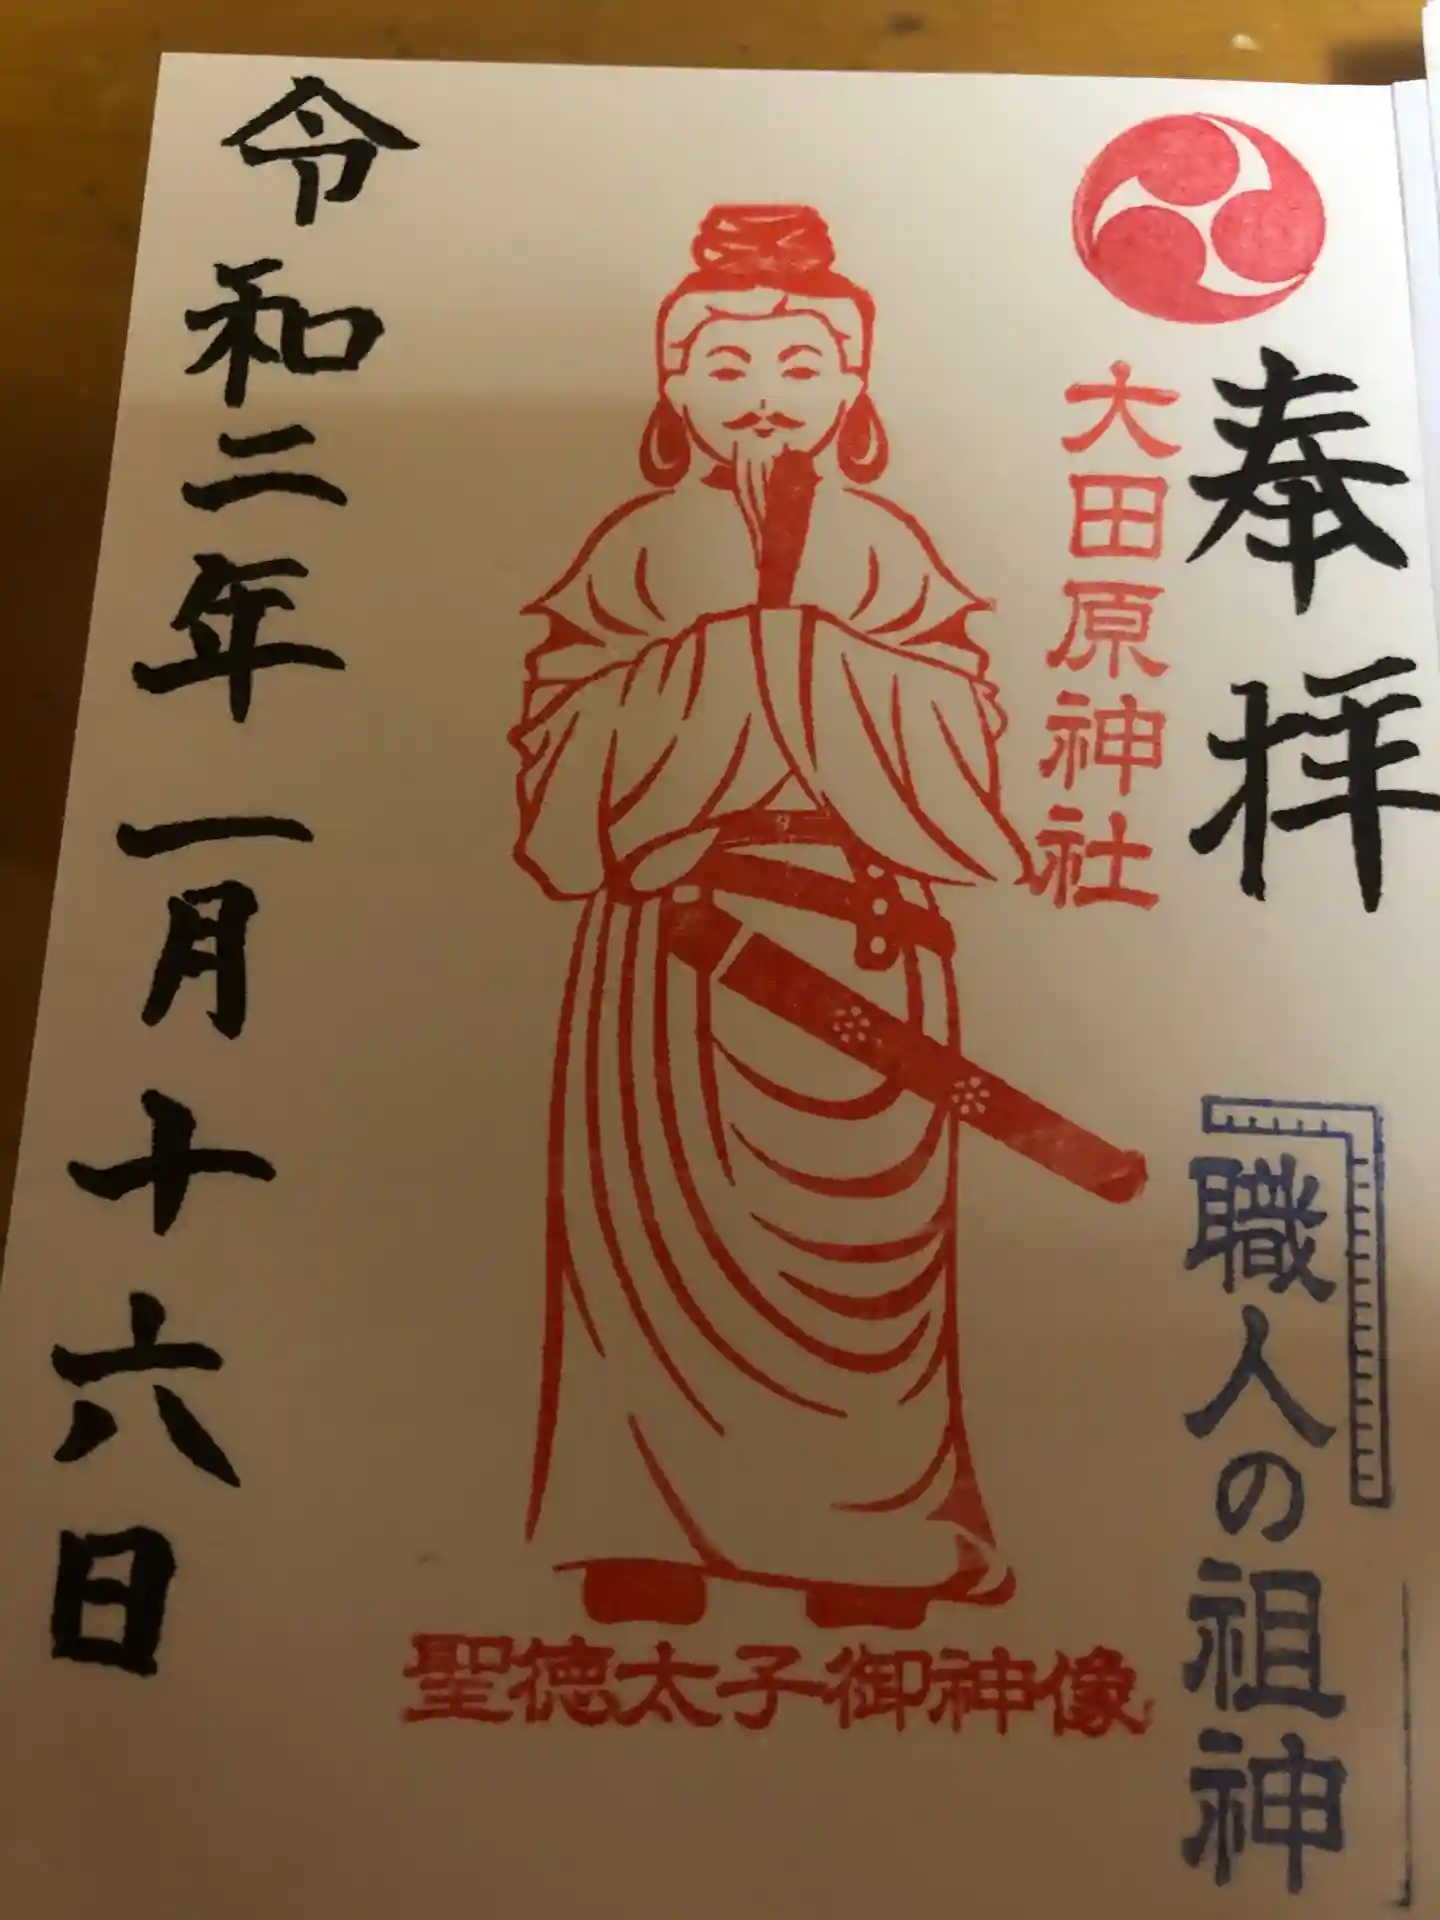 奉拝
大田原神社
職人の祖神
聖徳太子御神像
令和二年一月十六日